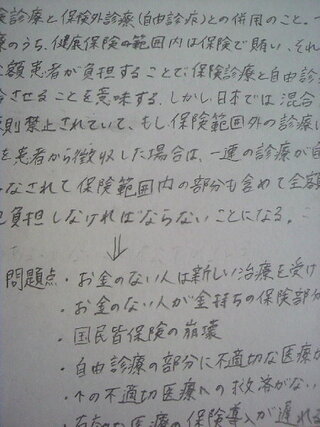 険診療と保険外診療(自由診療)との併用のこと。一
療のうち、健康保険の範囲内は保険で賄い、それ
額患者が負担することで、保険診療と自由診
させることを意味する。しかし、日本では混合
則禁止されていて、もし保険範囲外の診療
を患者から徴収した場合は、一連の診療が自
なされて保険範囲内の部分も含めて全額
負担しなければならないことになる。
⇓
問題点・お金のない人は新しい治療を受け
・お金のない人が金持ちの保険部分
・国民皆保険の崩壊
・自由診療の部分に不適切な医療が
・の不適切医療への救済がない
・医療の保険導入が遅れる